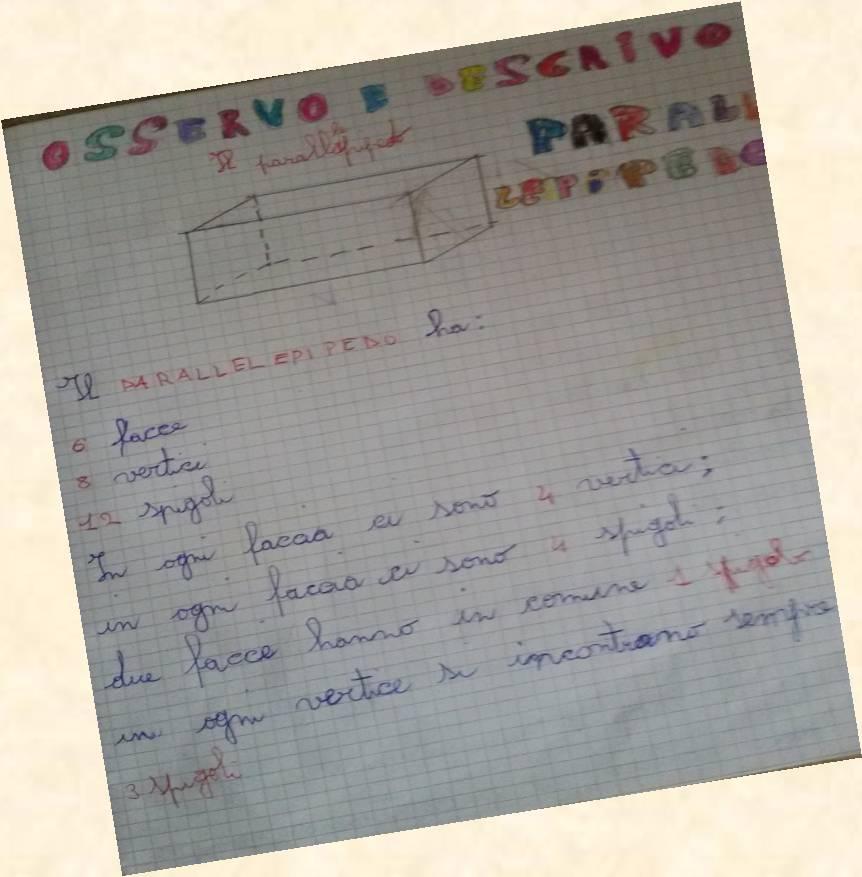 OSSERVO E DESCRIVO
Il parallelepipedo
PARALL
LEPIPEDO
Il PARALLELEPIPEDO ha:
6 facce
8 vertici
12 spigoli
In ogni faccia ci sono 4 vertici;
in ogni faccia ci sono 4 spigoli;
due facce hanno in comune 1 spigolo
in ogni vertice si incontrano sempre
3 spigoli